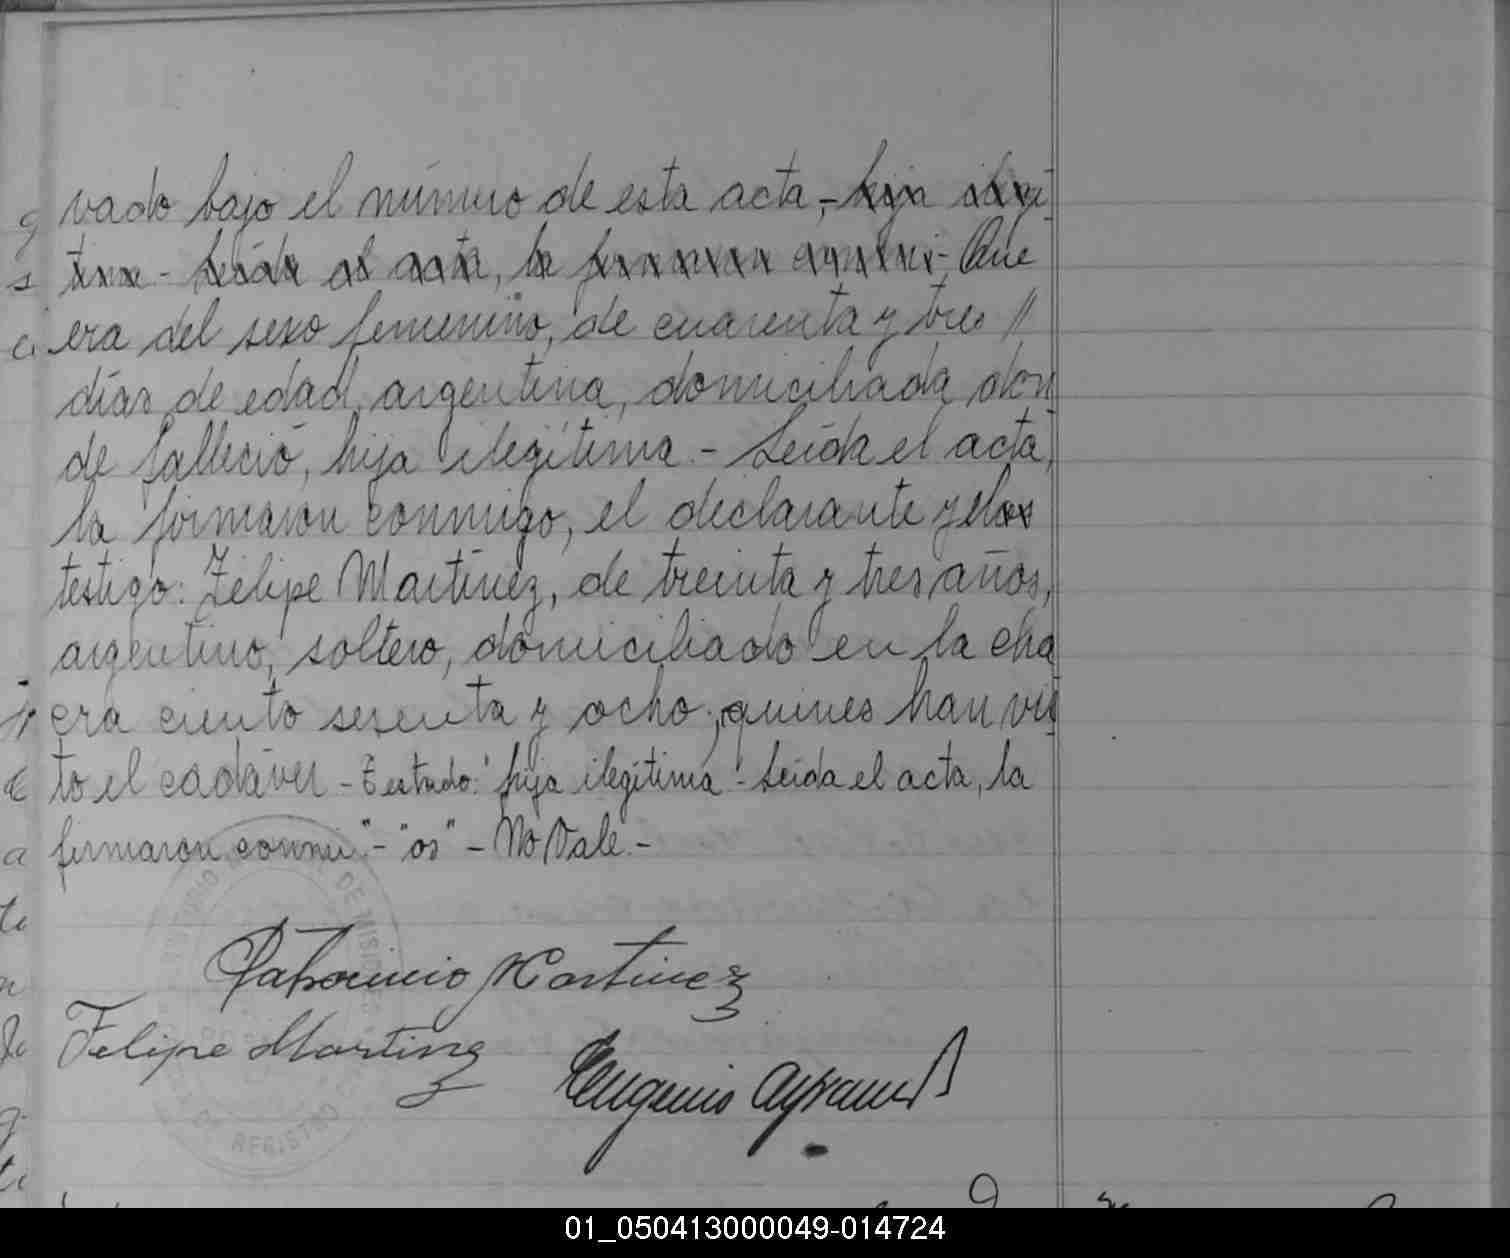 vado bajo el número de esta acta,- hija ilegí
tima - Leída el acta, la firmaron conmi - Que
era del sexo femenino, de cuarenta y tres //
días de edad, argentina, domiciliada don
de falleció, hija ilegítima.- Leída el acta,
la firmaron conmigo, el declarante y el os
testigo: Felipe Martínez, de treinta y tres años,
argentino, soltero, domiciliado en la cha
cra ciento sesenta y ocho, quines han vis
to el cadáver - Testado: "hija ilegítima - Leída el acta, la
firmaron conmi" - "os" - No Vale.-
Patrocinio Martinez
Felipe Martinez
Eugenio
TERRITORIO DE MISIONES
DE REGISTRO
01_050413000049-014724